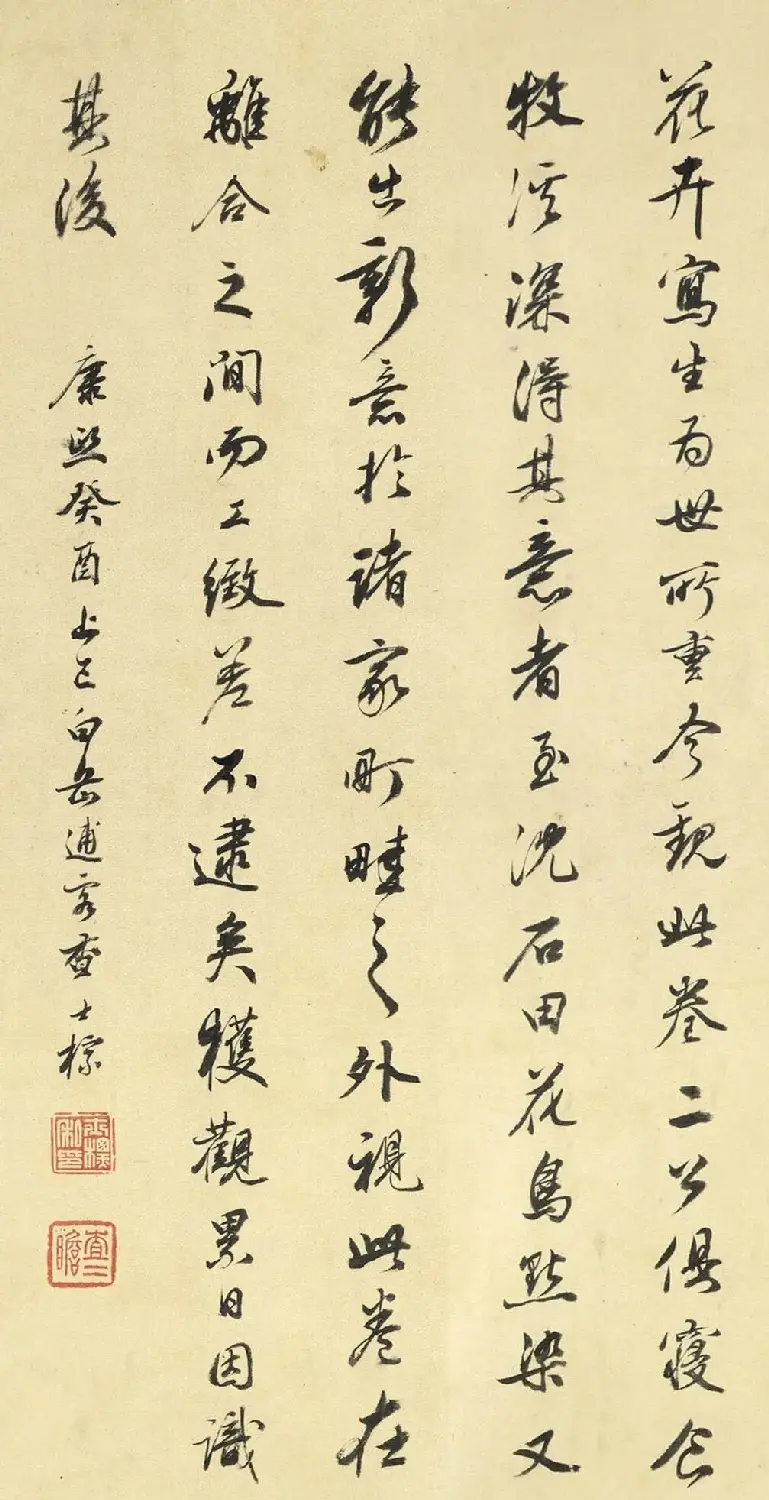 花卉寫生為世所重今觀此卷二公俱寢食
牧溪深得其意者至沈石田花鳥點染又
能出新意於諸家町畦之外視此卷在
離合之間而工緻差不逮矣獲觀累日因識
其後
康熙癸酉上巳白岳逋客查士標
士標私印
查二瞻